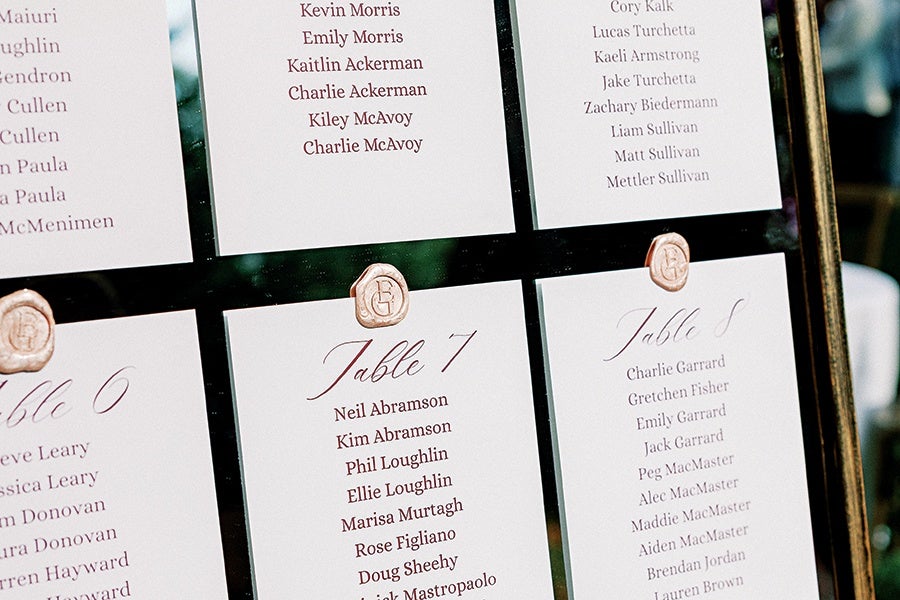 Maiuri
Gendron
Cullen
Cullen
Paula
Paula
McMenimen
Kevin Morris
Emily Morris
Kaitlin Ackerman
Charlie Ackerman
Kiley McAvoy
Charlie McAvoy
Cory Kalk
Lucas Turchetta
Kaeli Armstrong
Jake Turchetta
Zachary Biedermann
Liam Sullivan
Matt Sullivan
Mettler Sullivan
6
Leary
Leary
Donovan
Donovan
Hayward
Hayward
Table 7
Neil Abramson
Kim Abramson
Phil Loughlin
Ellie Loughlin
Marisa Murtagh
Rose Figliano
Doug Sheehy
Mastropaolo
Table 8
Charlie Garrard
Gretchen Fisher
Emily Garrard
Jack Garrard
Peg MacMaster
Alec MacMaster
Maddie MacMaster
Aiden MacMaster
Brendan Jordan
Lauren Brown